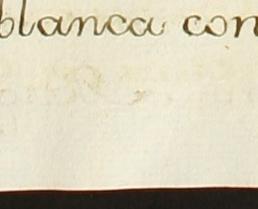 blanca con